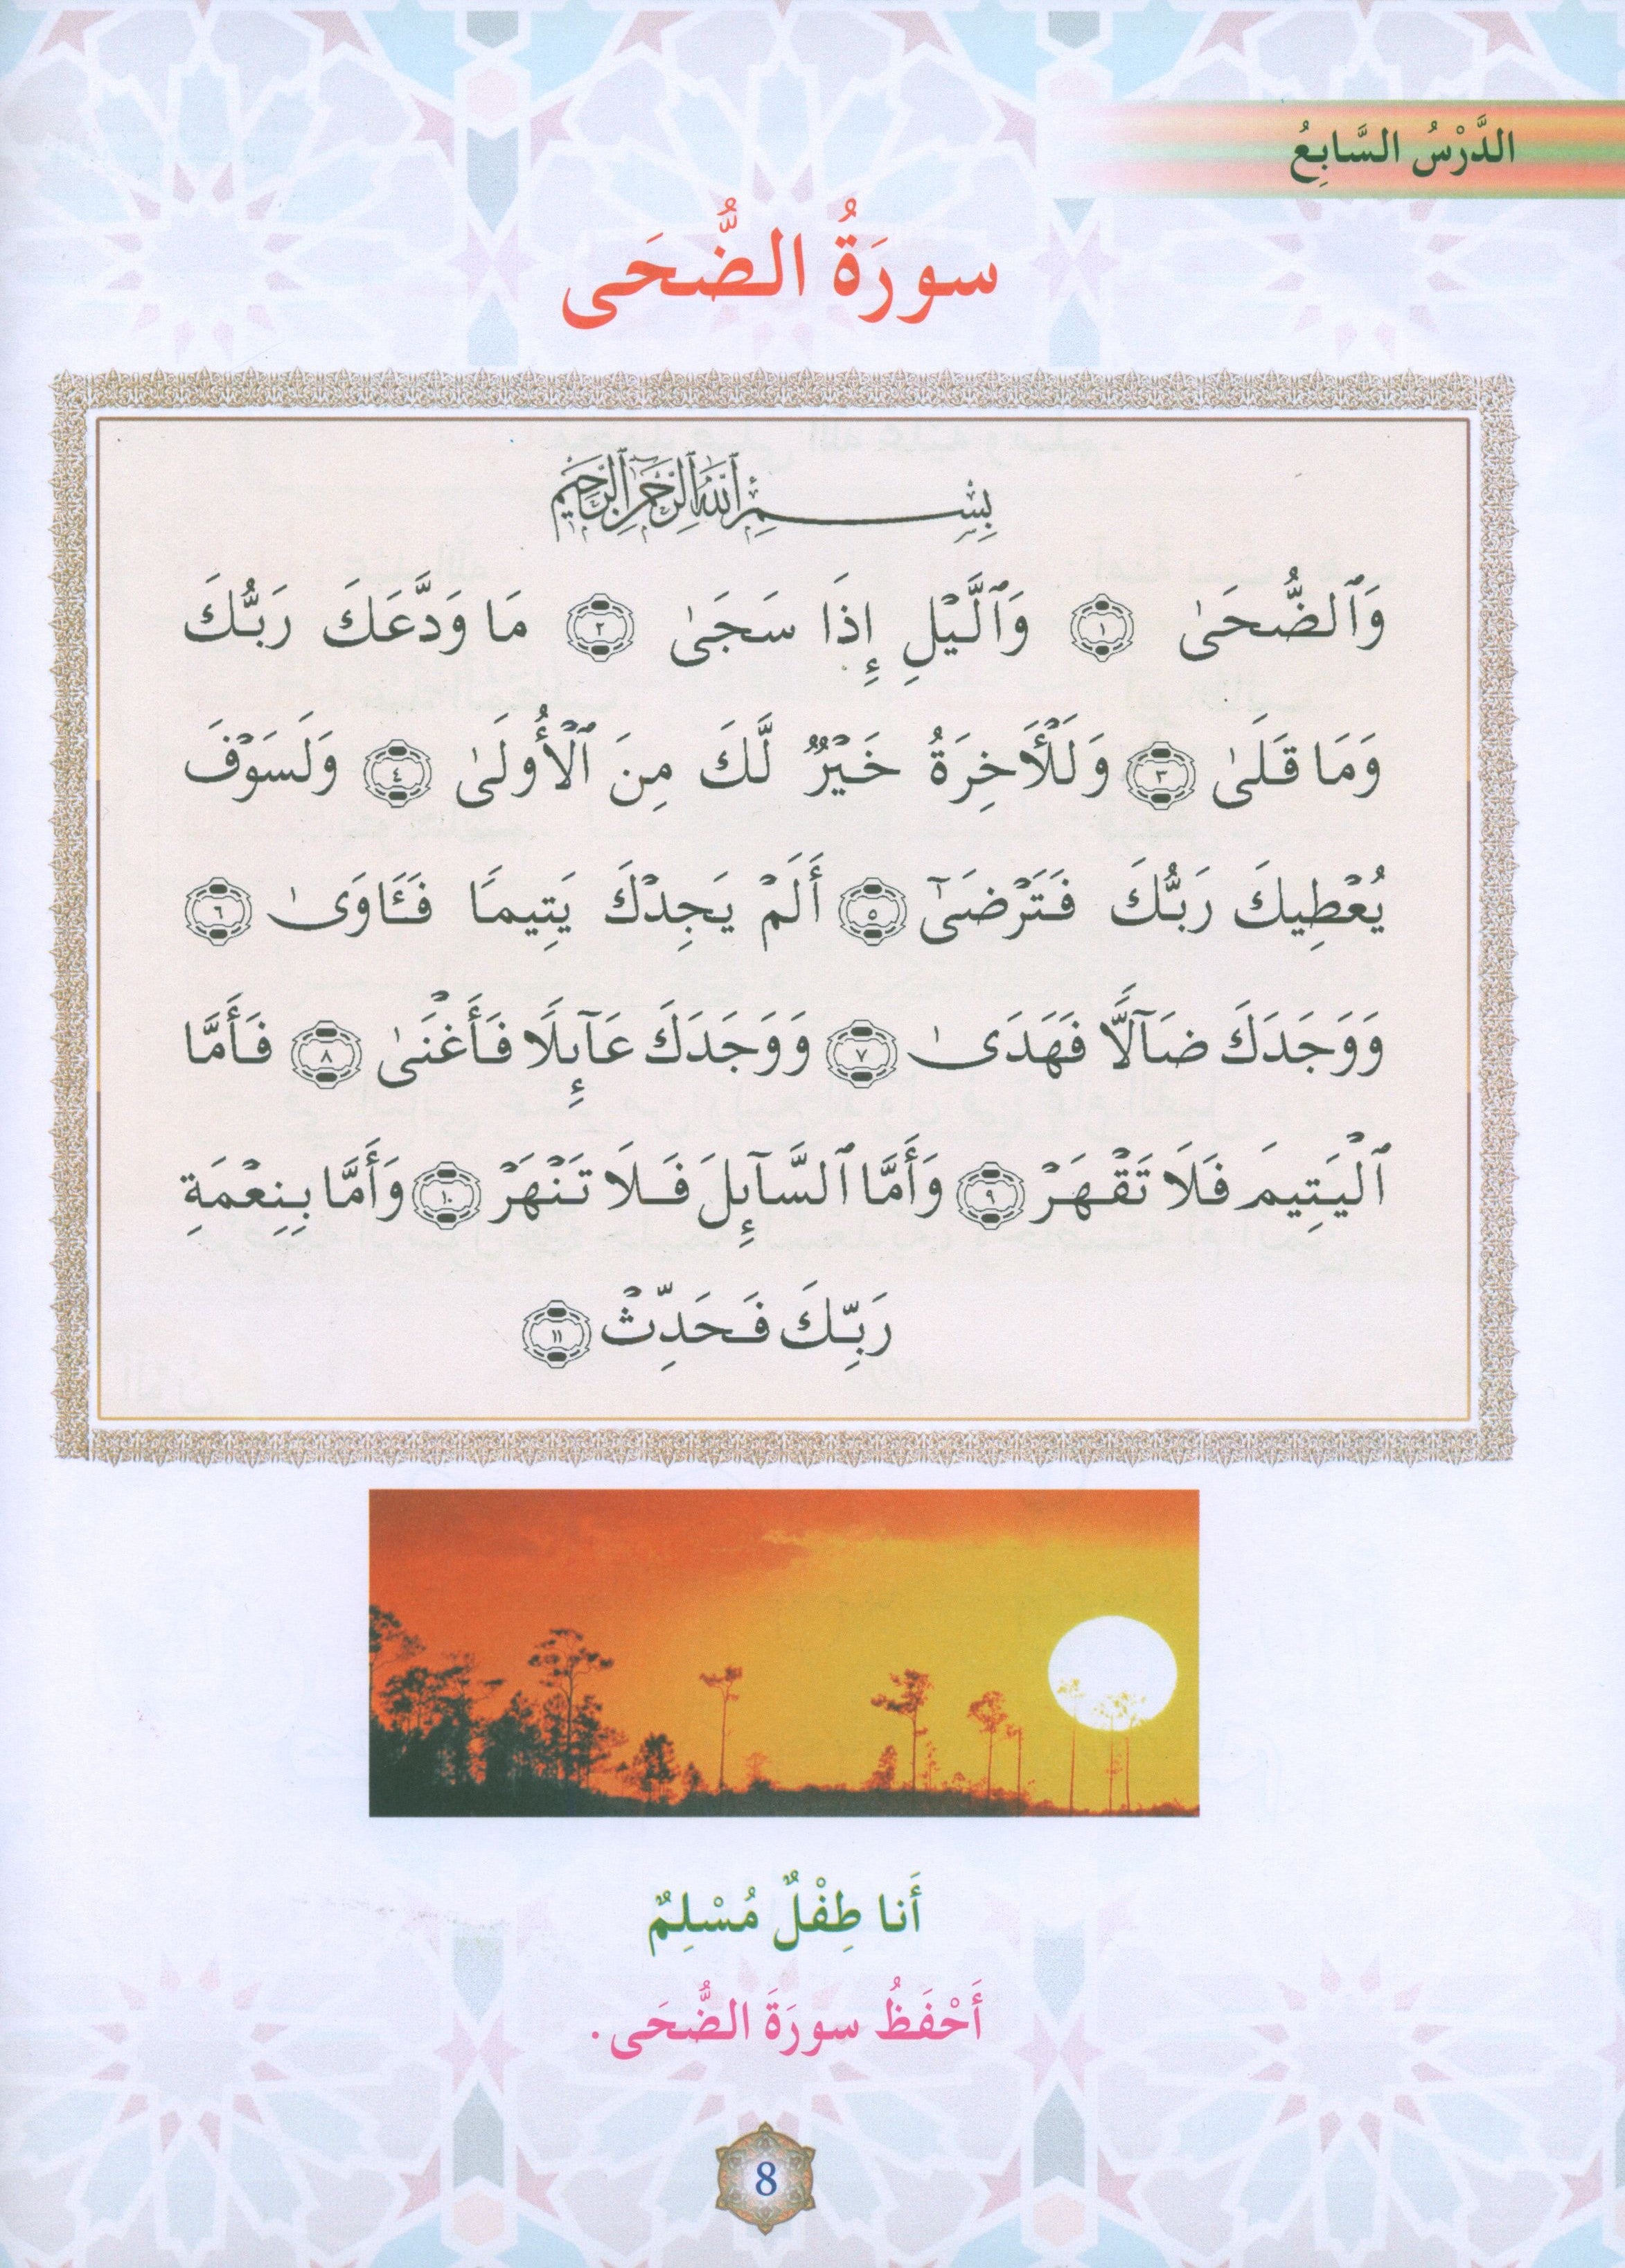 الدَّرْسُ السَّابِعُ
سورَةُ الضُّحَى
بِسْمِ ٱللَّهِ ٱلرَّحْمَٰنِ ٱلرَّحِيمِ
وَٱلضُّحَىٰ ١ وَٱلَّيْلِ إِذَا سَجَىٰ ٢ مَا وَدَّعَكَ رَبُّكَ
وَمَا قَلَىٰ ٣ وَلَلْأَخِرَةُ خَيْرٌ لَّكَ مِنَ ٱلْأُولَىٰ ٤ وَلَسَوْفَ
يُعْطِيكَ رَبُّكَ فَتَرْضَىٰٓ ٥ أَلَمْ يَجِدْكَ يَتِيمًا فَـَٔاوَىٰ ٦
وَوَجَدَكَ ضَآلًّا فَهَدَىٰ ٧ وَوَجَدَكَ عَآئِلًا فَأَغْنَىٰ ٨ فَأَمَّا
ٱلْيَتِيمَ فَلَا تَقْهَرْ ٩ وَأَمَّا ٱلسَّآئِلَ فَلَا تَنْهَرْ ١٠ وَأَمَّا بِنِعْمَةِ
رَبِّكَ فَحَدِّثْ ١١
أَنا طِفْلٌ مُسْلِمٌ
أَحْفَظُ سورَةَ الضُّحَى.
8